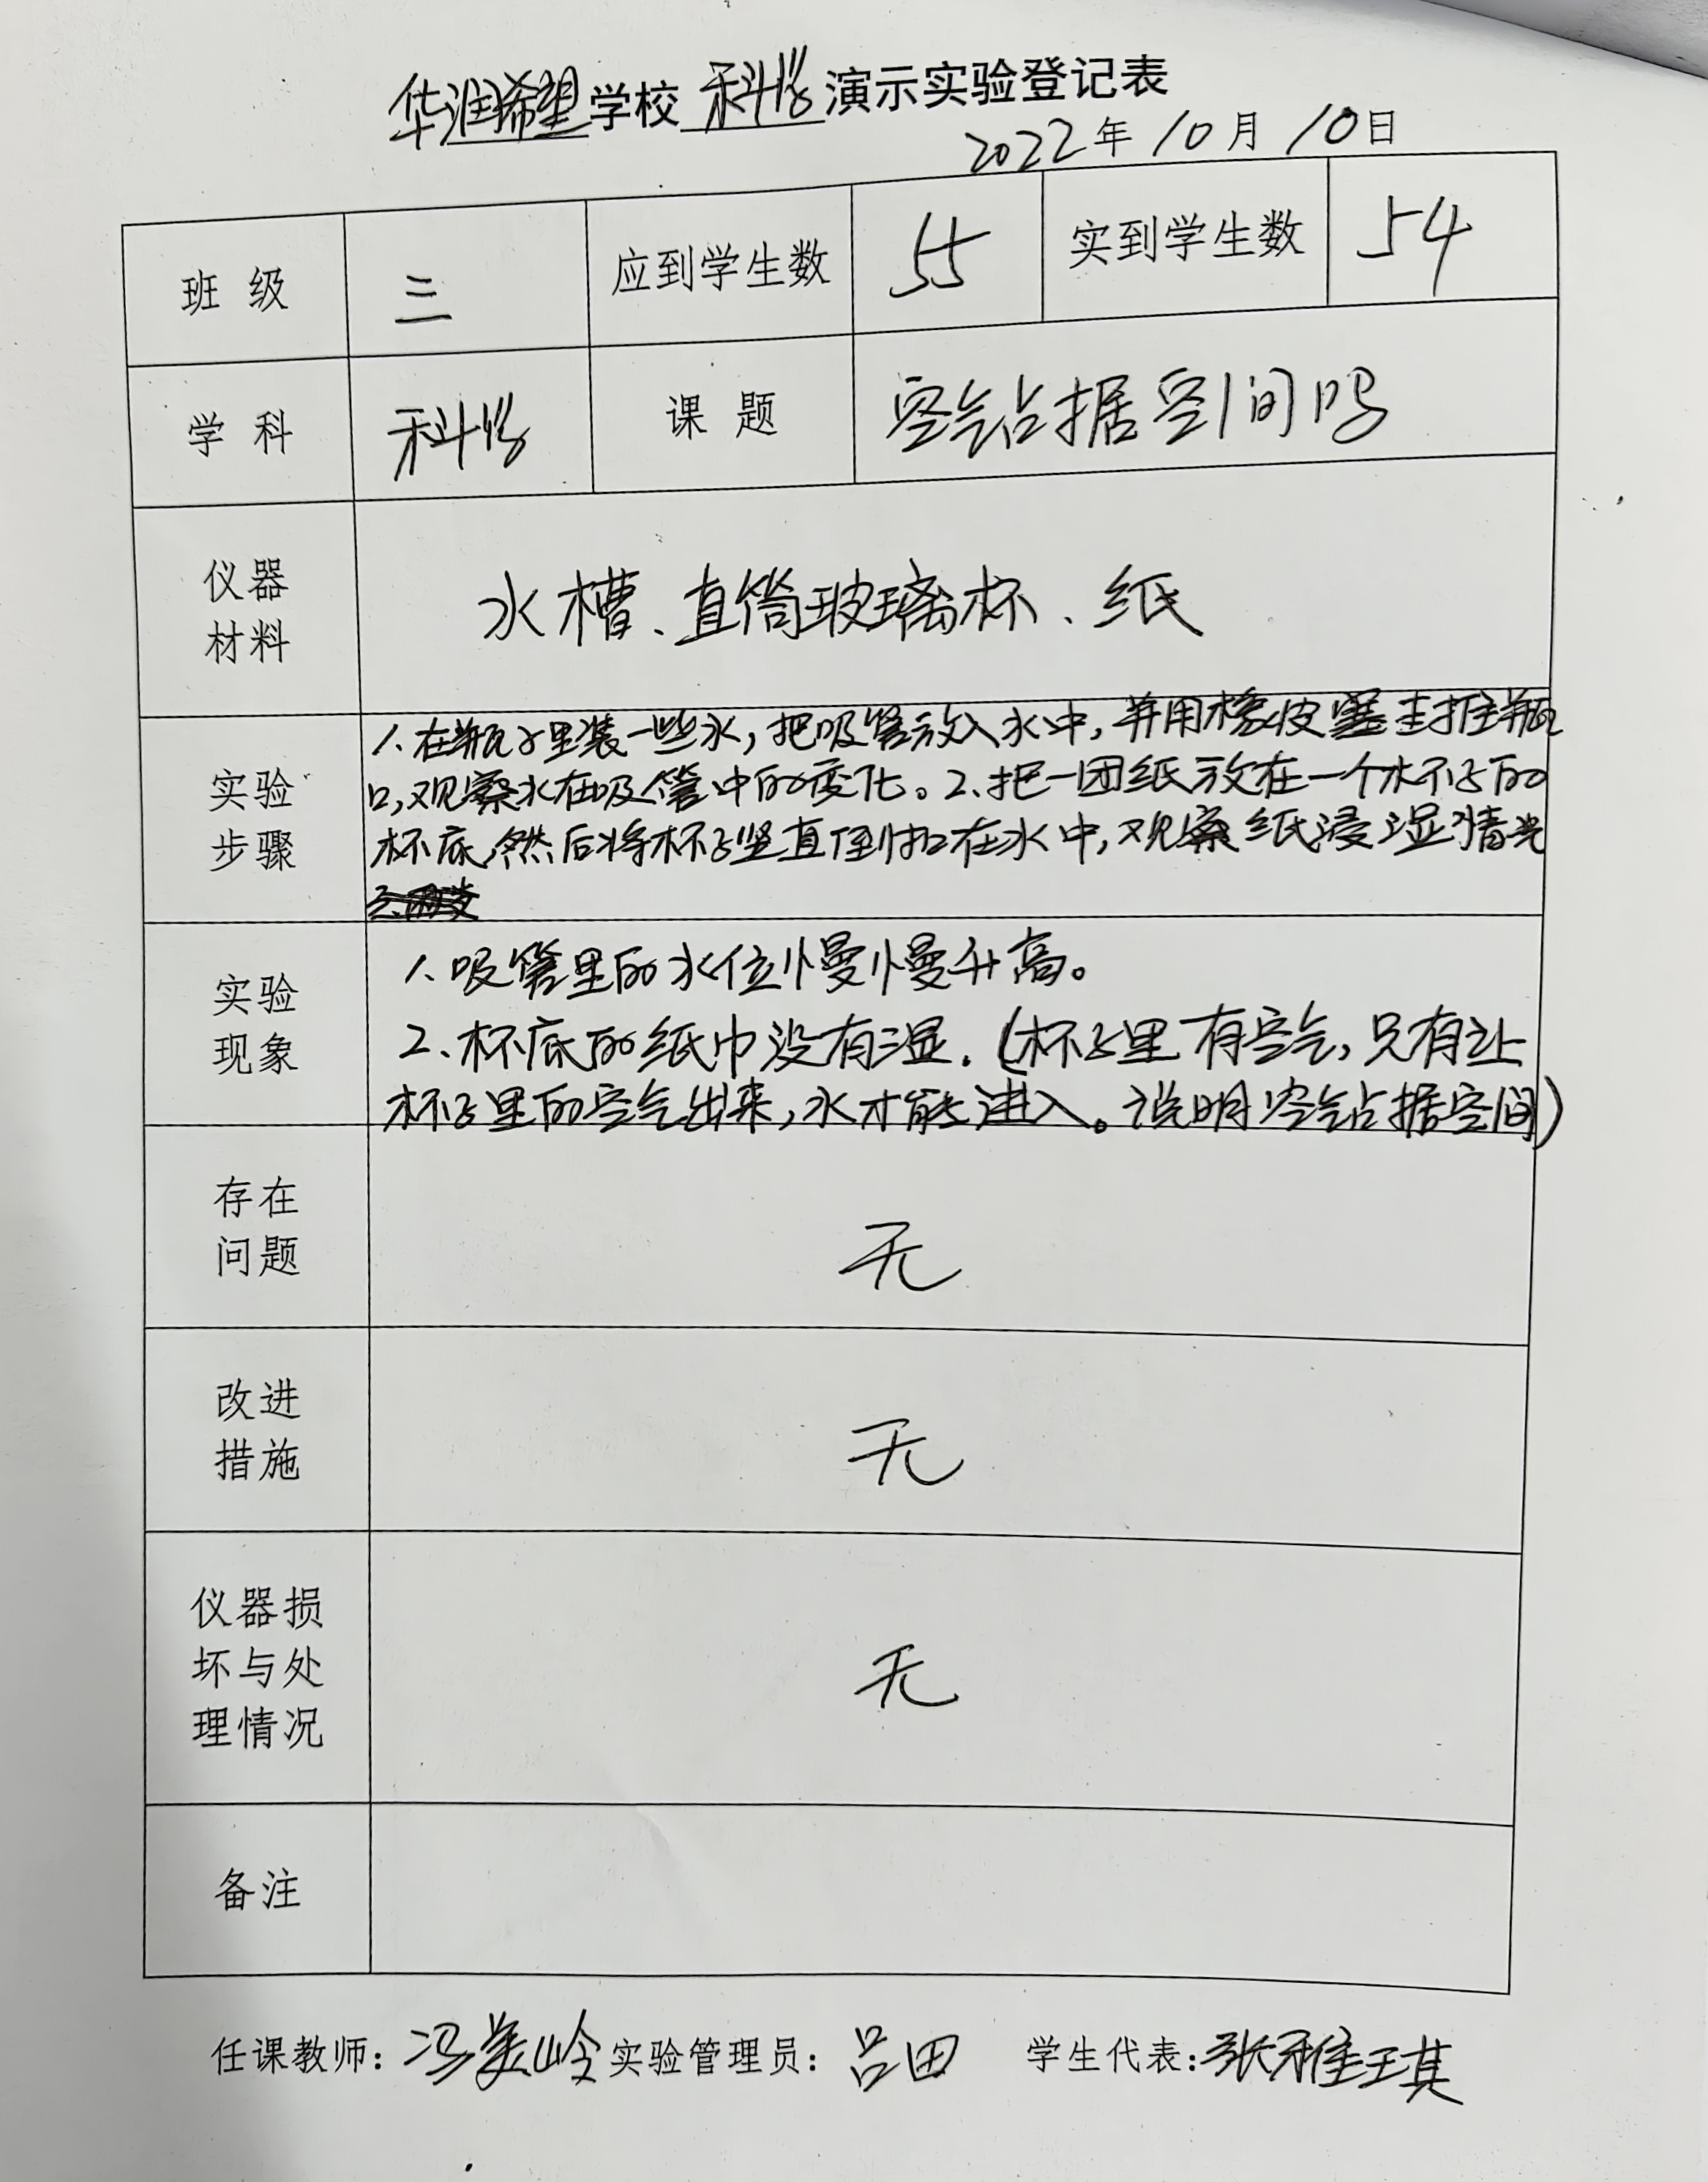 华润希望学校 科学 演示实验登记表
2022年10月10日
班级 三 应到学生数 55 实到学生数 54
学科 科学 课题 空气占据空间吗
仪器
材料
水槽、直筒玻璃杯、纸
实验
步骤
1.在瓶子里装一些水,把吸管放入水中,并用橡皮塞封住瓶
口,观察水在吸管中的变化。2.把一团纸放在一个杯子的
杯底,然后将杯子竖直倒扣在水中,观察纸浸湿情况
实验
现象
1.吸管里的水位慢慢升高。
2、杯底的纸巾没有湿.(杯子里有空气,只有让
杯子里的空气出来,水才能进入。说明空气占据空间)
存在
问题
无
改进
措施
无
仪器损
坏与处
理情况
无
备注
任课教师:冯美岭 实验管理员:吕田 学生代表:张雅琪